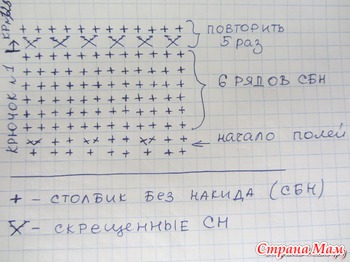 повторить
5 раз
КРЮЧОК №1
6 РЯДОВ СБН
начало полей
+ - СТОЛБИК БЕЗ НАКИДА (СБН)
X - СКРЕЩЕННЫЕ СН
Страна Мам